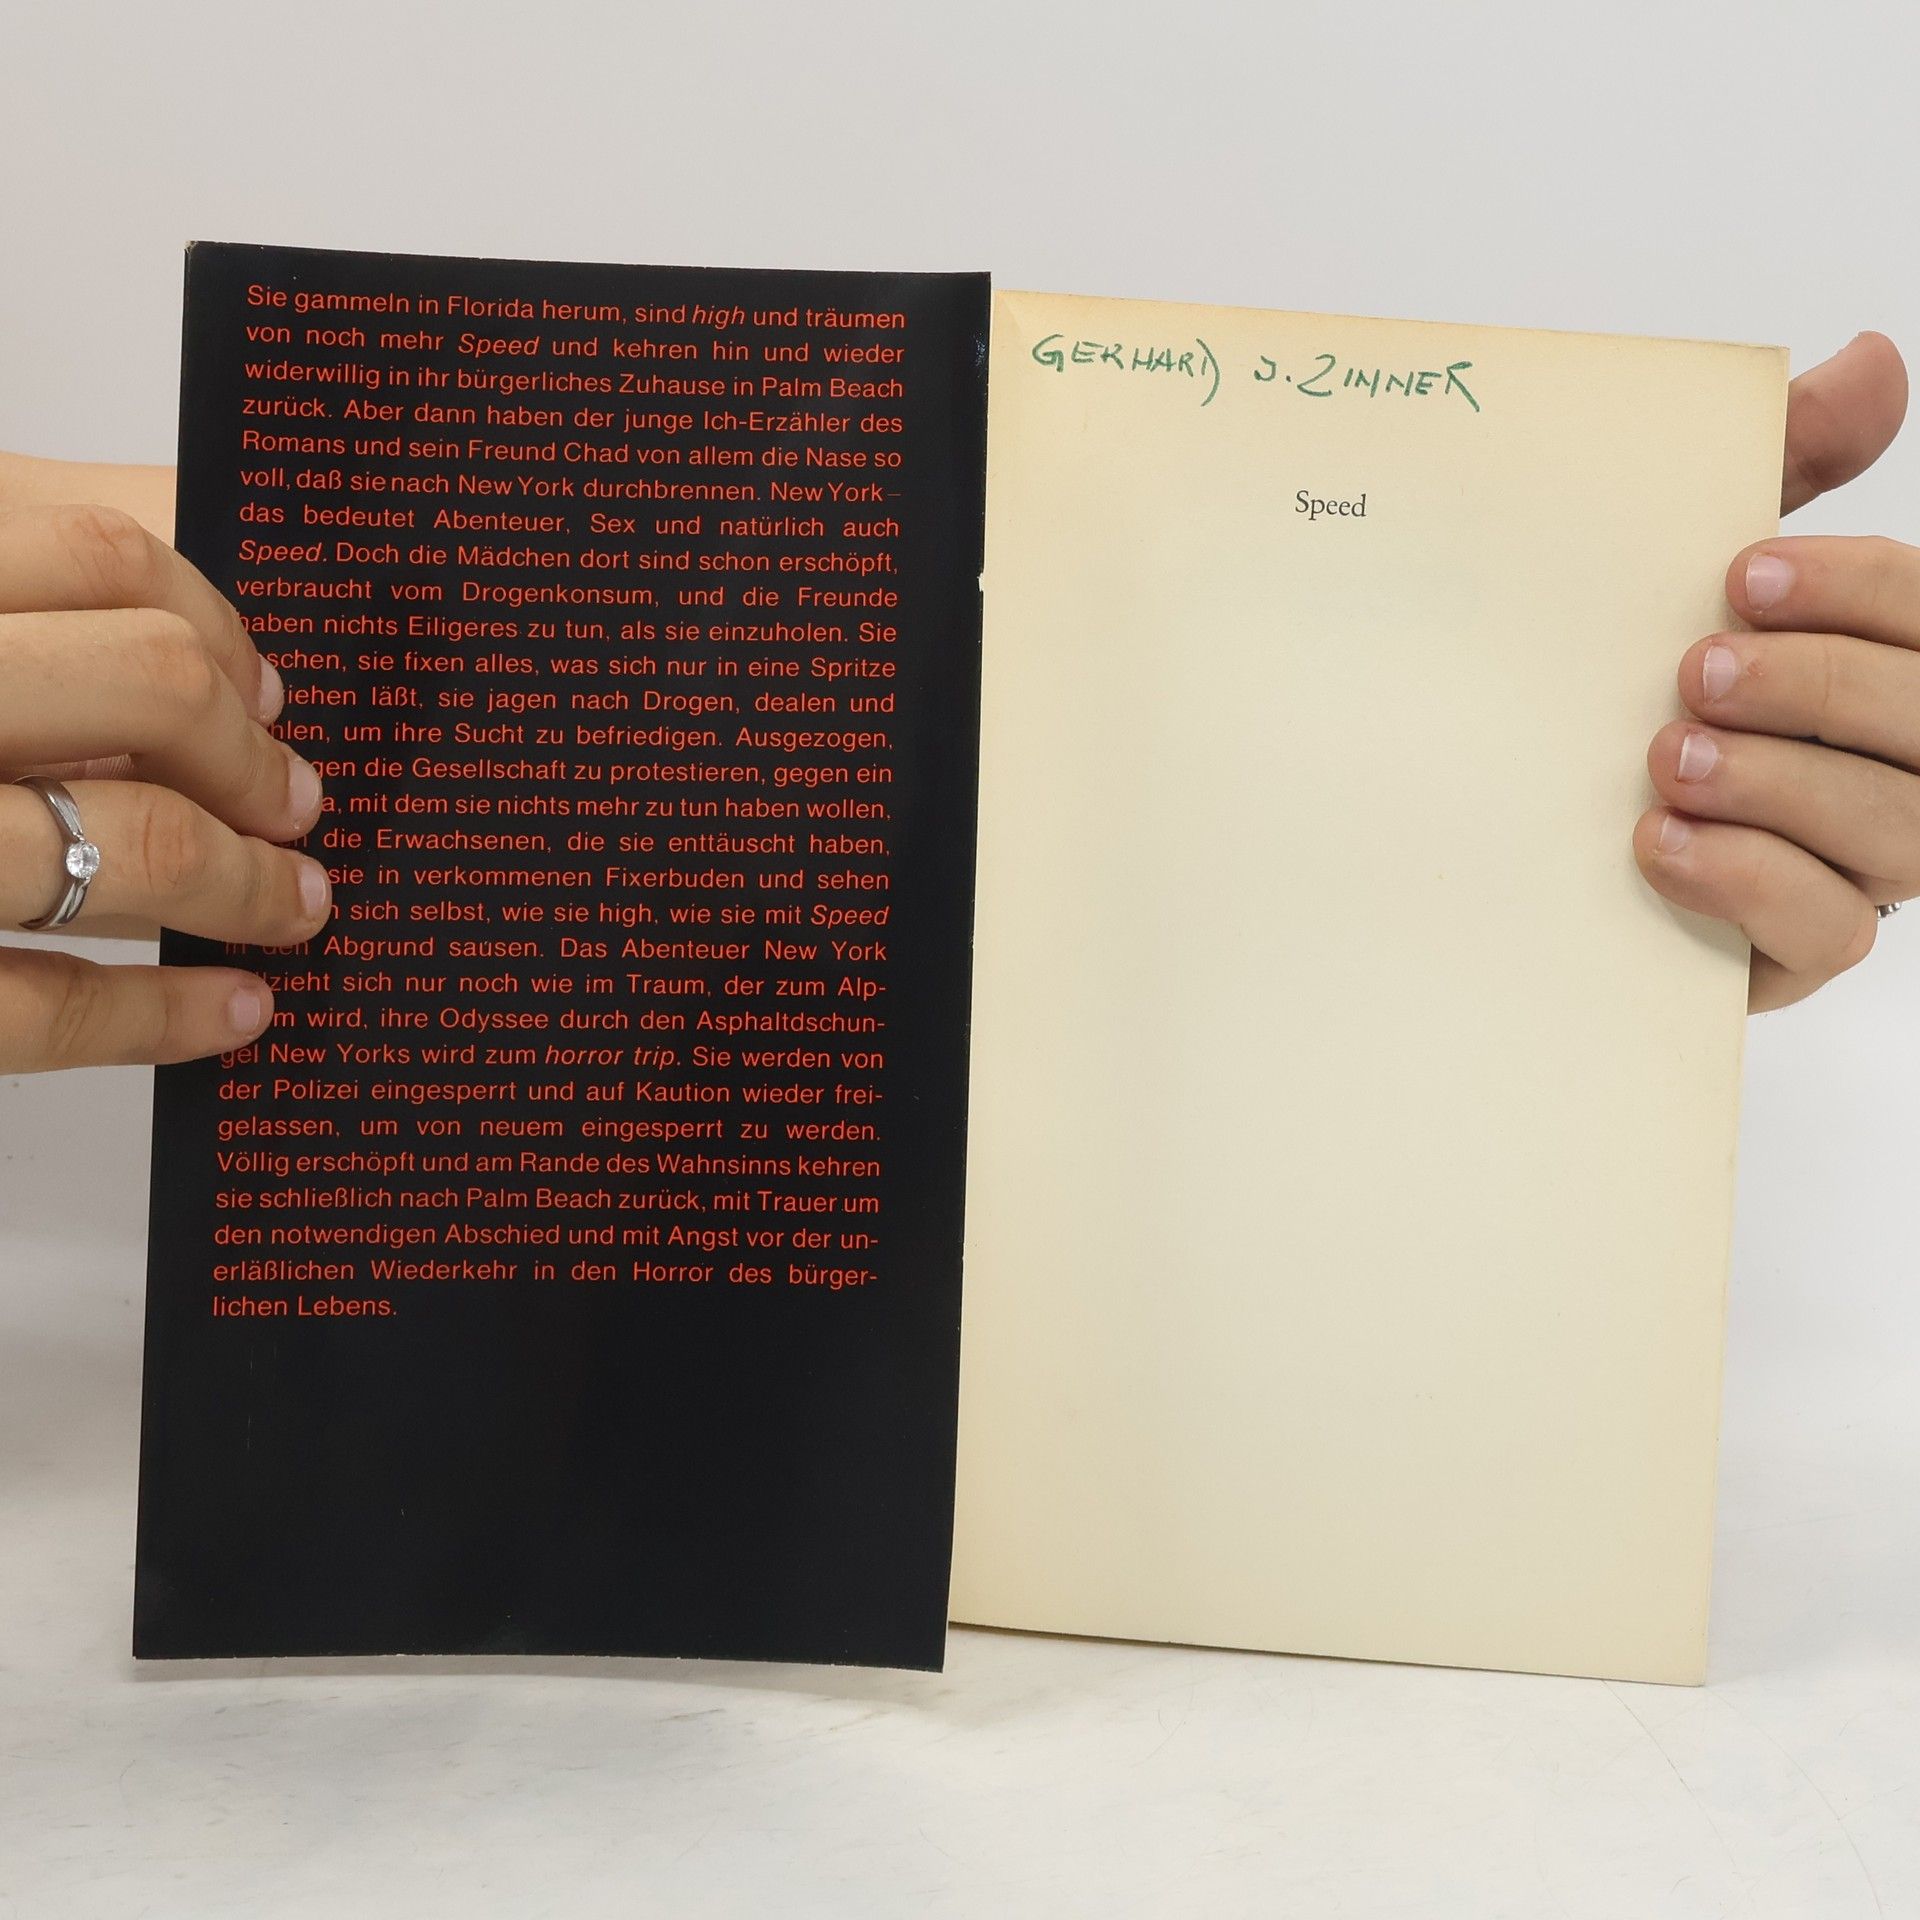 Sie gammeln in Florida herum, sind high und träumen
von noch mehr Speed und kehren hin und wieder
widerwillig in ihr bürgerliches Zuhause in Palm Beach
zurück. Aber dann haben der junge Ich-Erzähler des
Romans und sein Freund Chad von allem die Nase so
voll, daß sie nach New York durchbrennen. New York –
das bedeutet Abenteuer, Sex und natürlich auch
Speed. Doch die Mädchen dort sind schon erschöpft,
verbraucht vom Drogenkonsum, und die Freunde
haben nichts Eiligeres zu tun, als sie einzuholen. Sie
sie fixen alles, was sich nur in eine Spritze
läßt, sie jagen nach Drogen, dealen und
um ihre Sucht zu befriedigen. Ausgezogen,
die Gesellschaft zu protestieren, gegen ein
mit dem sie nichts mehr zu tun haben wollen,
die Erwachsenen, die sie enttäuscht haben,
sie in verkommenen Fixerbuden und sehen
sich selbst, wie sie high, wie sie mit Speed
in den Abgrund sausen. Das Abenteuer New York
sich nur noch wie im Traum, der zum Alp-
wird, ihre Odyssee durch den Asphaltdschun-
gel New Yorks wird zum horror trip. Sie werden von
der Polizei eingesperrt und auf Kaution wieder frei-
gelassen, um von neuem eingesperrt zu werden.
Völlig erschöpft und am Rande des Wahnsinns kehren
sie schließlich nach Palm Beach zurück, mit Trauer um
den notwendigen Abschied und mit Angst vor der un-
erläßlichen Wiederkehr in den Horror des bürger-
lichen Lebens.
GERHARD J. ZINNER
Speed